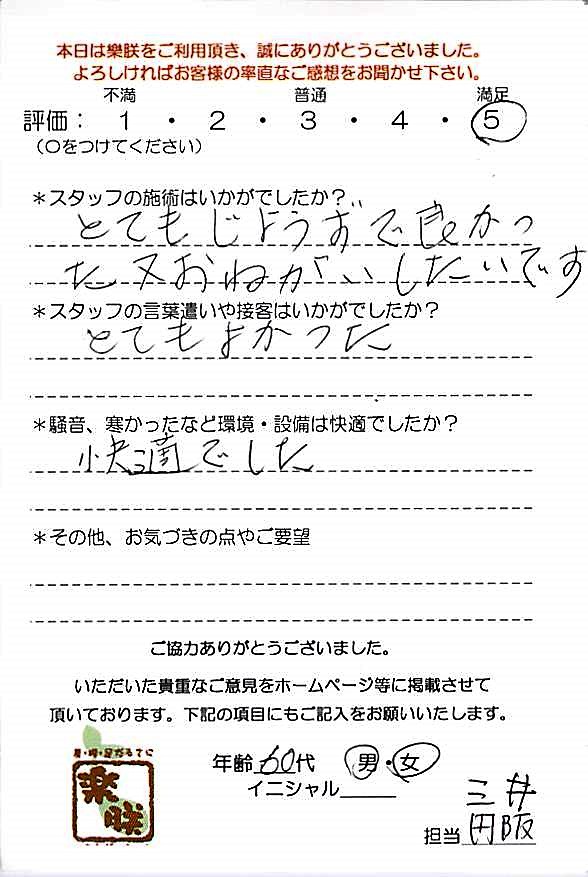 本日は樂朕をご利用頂き、誠にありがとうございました。
よろしければお客様の率直なご感想をお聞かせ下さい。
不満 普通 満足
評価： 1 ・ 2 ・ 3 ・ 4 ・ 5
（〇をつけてください）
＊スタッフの施術はいかがでしたか？
とてもじょうずで良かっ
た又おねがいしたいです
＊スタッフの言葉遣いや接客はいかがでしたか？
とてもよかった
＊騒音、寒かったなど環境・設備は快適でしたか？
快適でした
＊その他、お気づきの点やご要望
ご協力ありがとうございました。
いただいた貴重なご意見をホームページ等に掲載させて
頂いております。下記の項目にもご記入をお願いいたします。
年齢 60代 男・女
イニシャル
樂朕
三井
担当 円阪